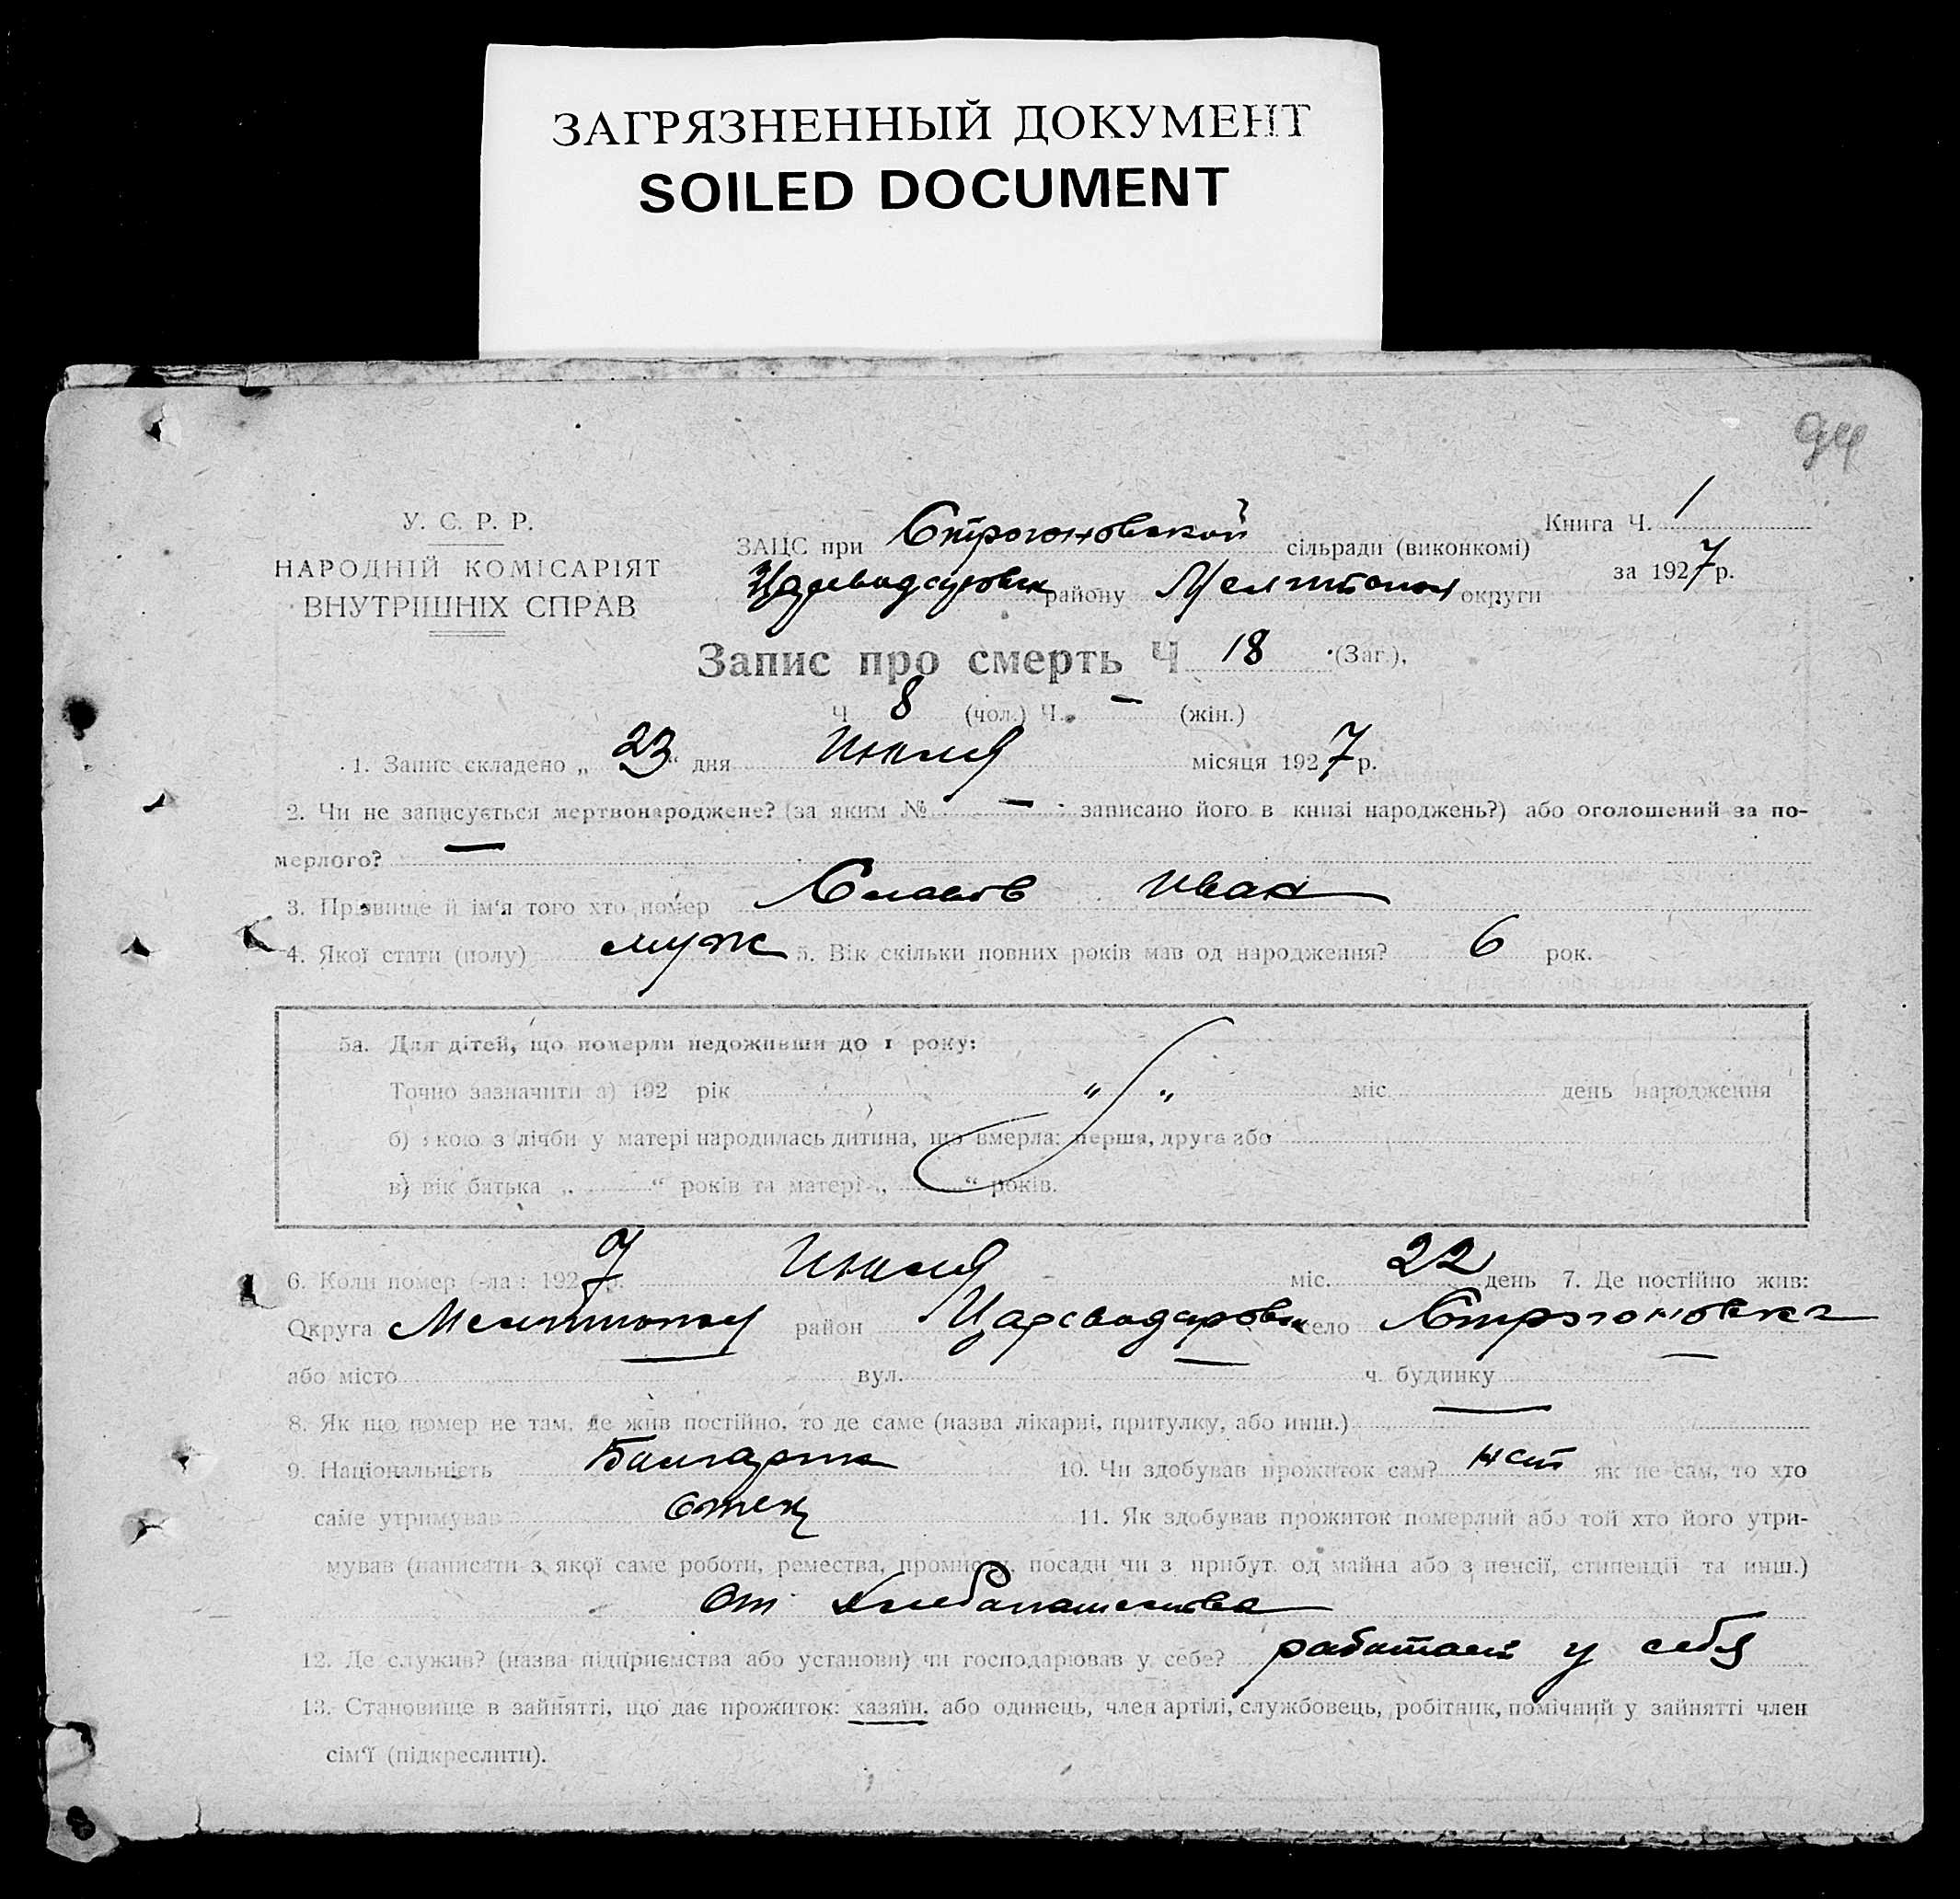 ЗАГРЯЗНЕННЫЙ ДОКУМЕНТ
SOILED DOCUMENT
94
У. С. Р. Р.
НАРОДНІЙ КОМІСАРІЯТ
ВНУТРІШНІХ СПРАВ
Книга Ч. 1
за 1927 р.
ЗАЦС при Строгоновской сільради (виконкомі)
району Мелитопол округи
Запис про смерть Ч 18 (Заг.),
Ч 8 (чол.) Ч. – (жін.)
1. Запис складено „ 23 “ дня Июля місяця 1927 р.
2. Чи не записується мертвонароджене? (за яким № – записано його в книзі народжень?) або оголошений за по-
мерлого? –
3. Прізвище й ім'я того хто помер Иван
4. Якої стати (полу) муж 5. Вік скільки повних років мав од народження? 6 рок.
5а. Для дітей, що померли недоживши до 1 року:
Точно зазначити а) 192 рік " " міс. день народження
б) якою з лічби у матері народилась дитина, що вмерла: перша, друга або
в) вік батька „ “ років та матері „ “ років.
6. Коли помер (-ла): 1927 р. Июля міс. 22 день 7. Де постійно жив:
Округа Мелитопол район Царсводаровск село Строгоновка
або місто вул. ч. будинку
8. Як що помер не там, де жив постійно, то де саме (назва лікарні, притулку, або инш.) —
9. Національність Болгарин 10. Чи здобував прожиток сам? нет як не сам, то хто
саме утримував Отец 11. Як здобував прожиток померлий або той хто його утри-
мував (написати з якої саме роботи, ремества, промислу, посади чи з прибут. од майна або з пенсії, стипендії та инш.)
От хлебопашества
12. Де служив? (назва підприємства або установи) чи господарював у себе? работает у себя
13. Становище в зайнятті, що дає прожиток: хазяїн, або одинець, член артілі, службовець, робітник, помічний у зайнятті член
сім'ї (підкреслити).